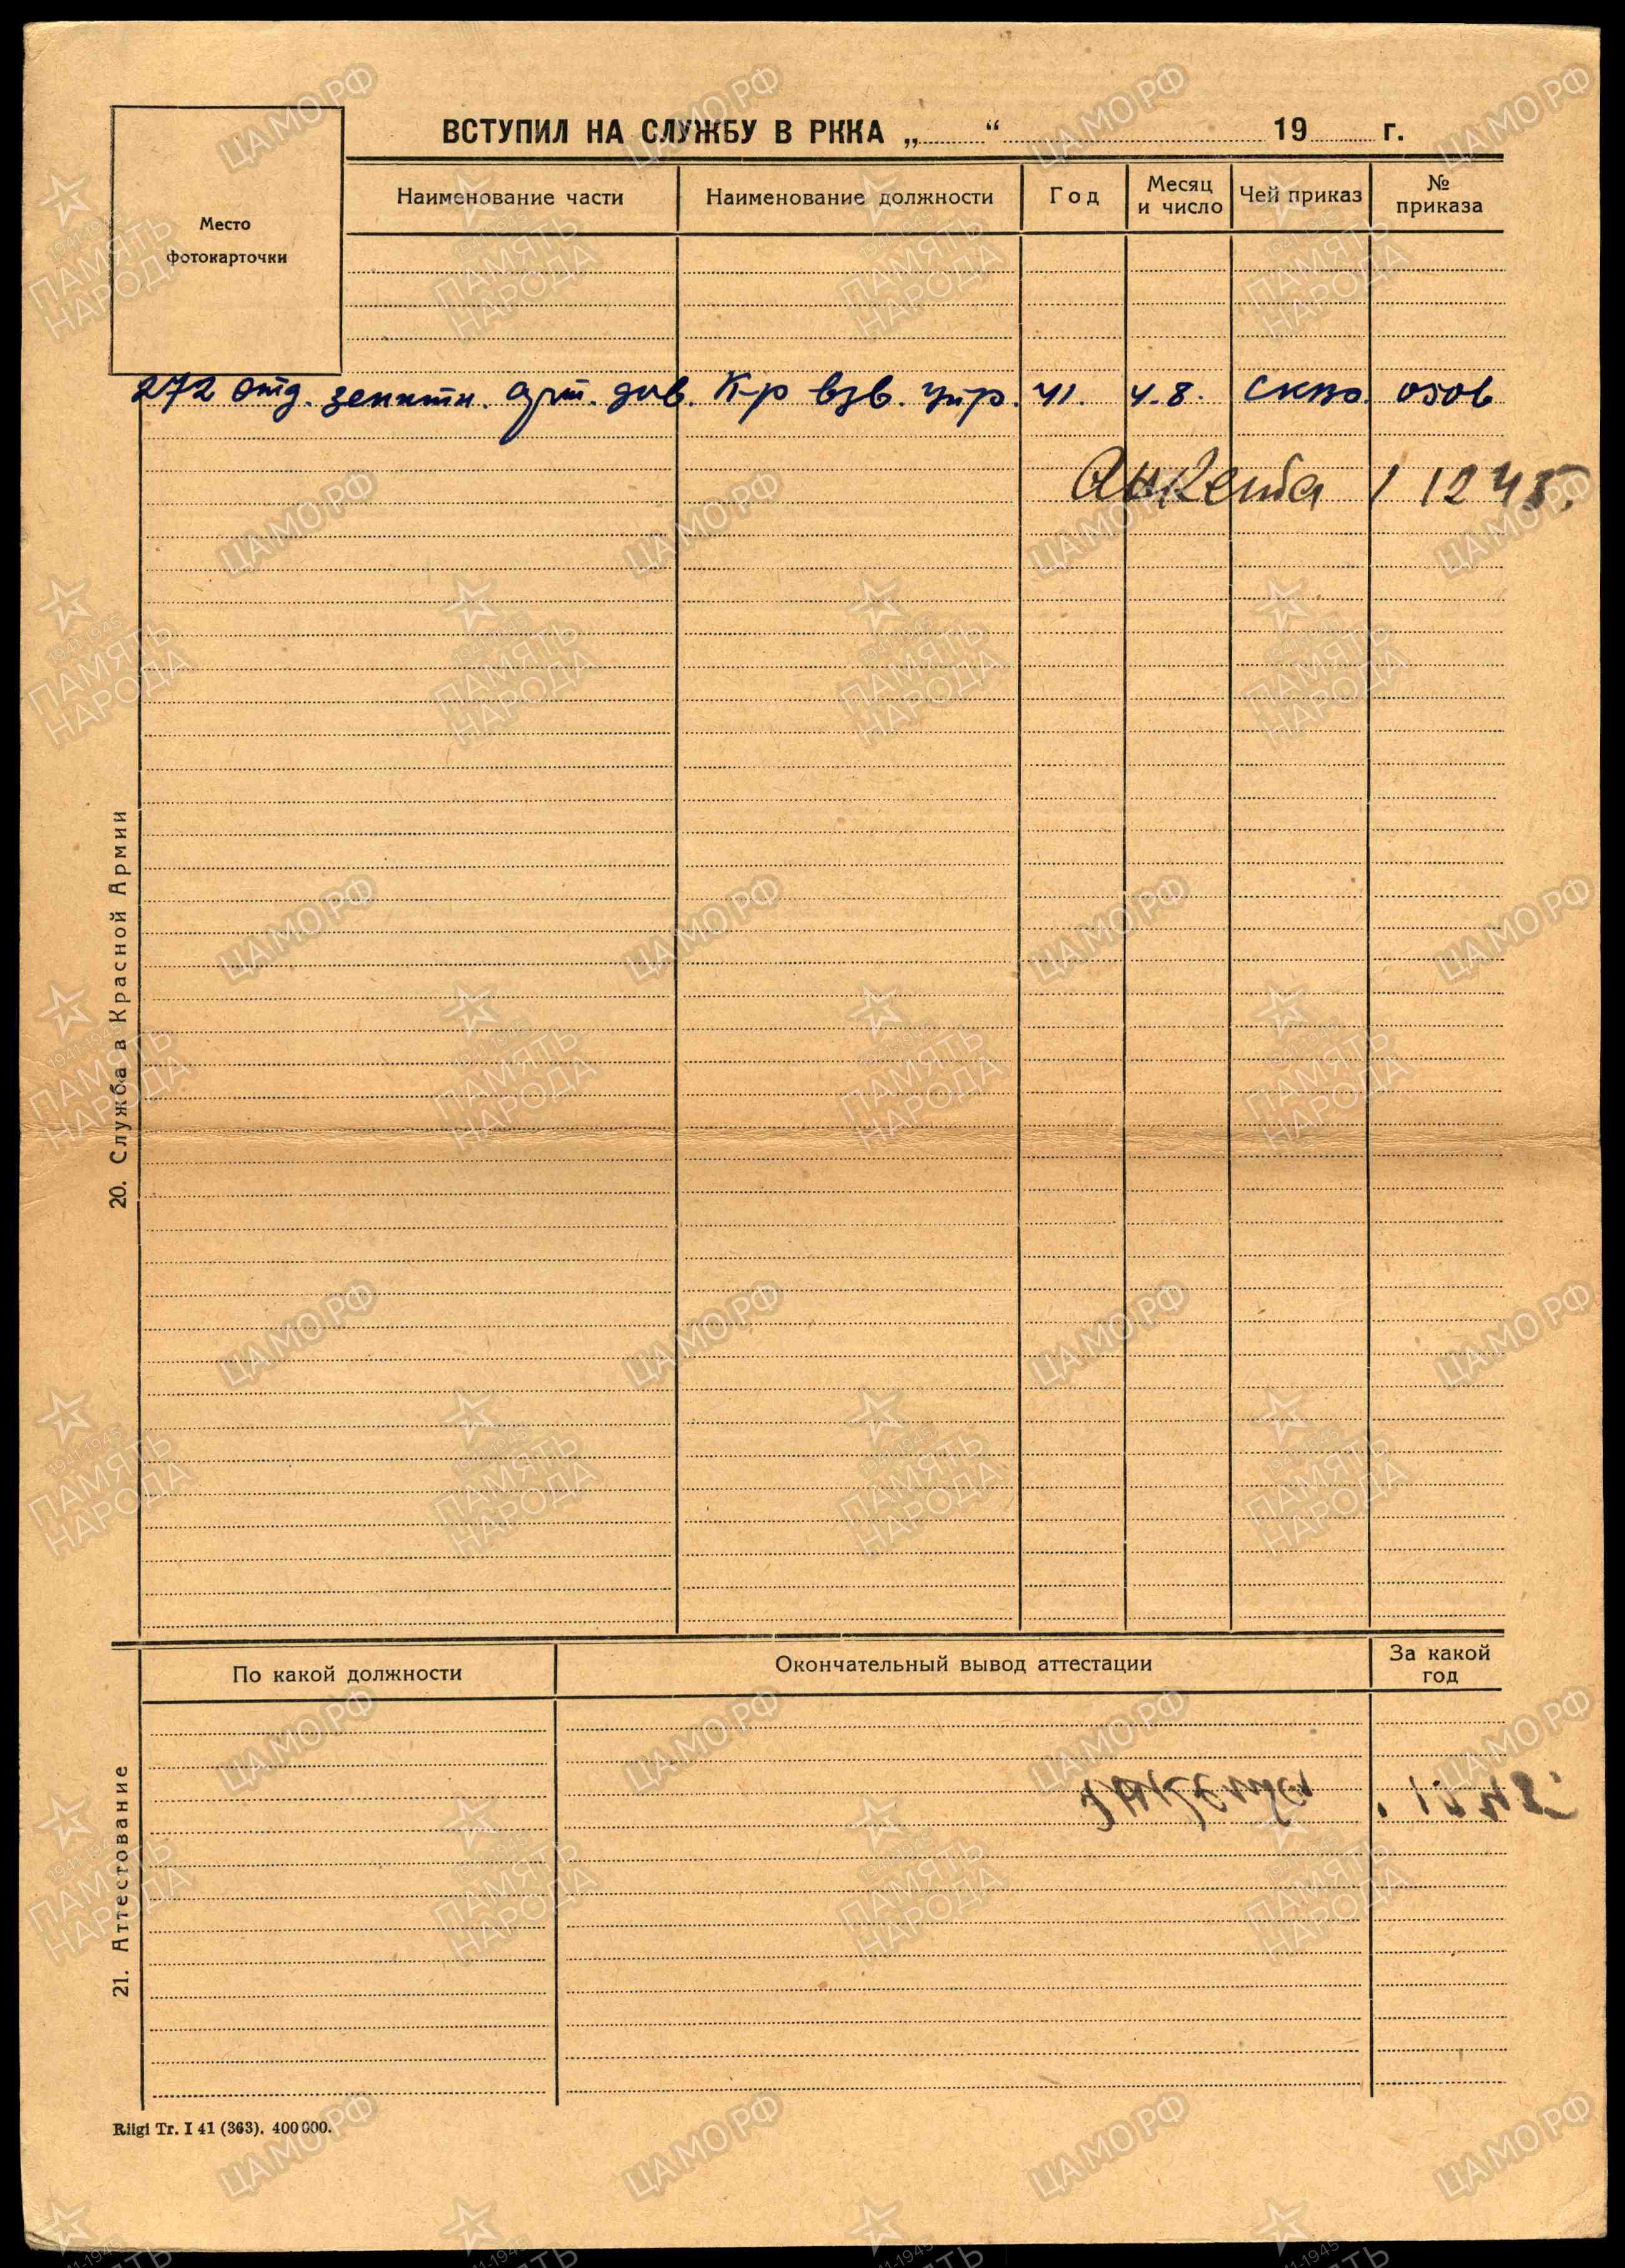 ВСТУПИЛ НА СЛУЖБУ В РККА „ “ 19 г.
Место
фотокарточки
Наименование части
Наименование должности
Год
Месяц
и число
Чей приказ
№
приказа
272 отд. зенитн. арт. див. К-р взв. упр. 41. 4.8. скво. 0306
Анкета 1 12 45.
20. Служба в Красной Армии
По какой должности
Окончательный вывод аттестации
За какой
год
21. Аттестование
Riigi Tr. I 41 (363). 400000.
ЦАМО.РФ
1941-1945
ПАМЯТЬ
НАРОДА